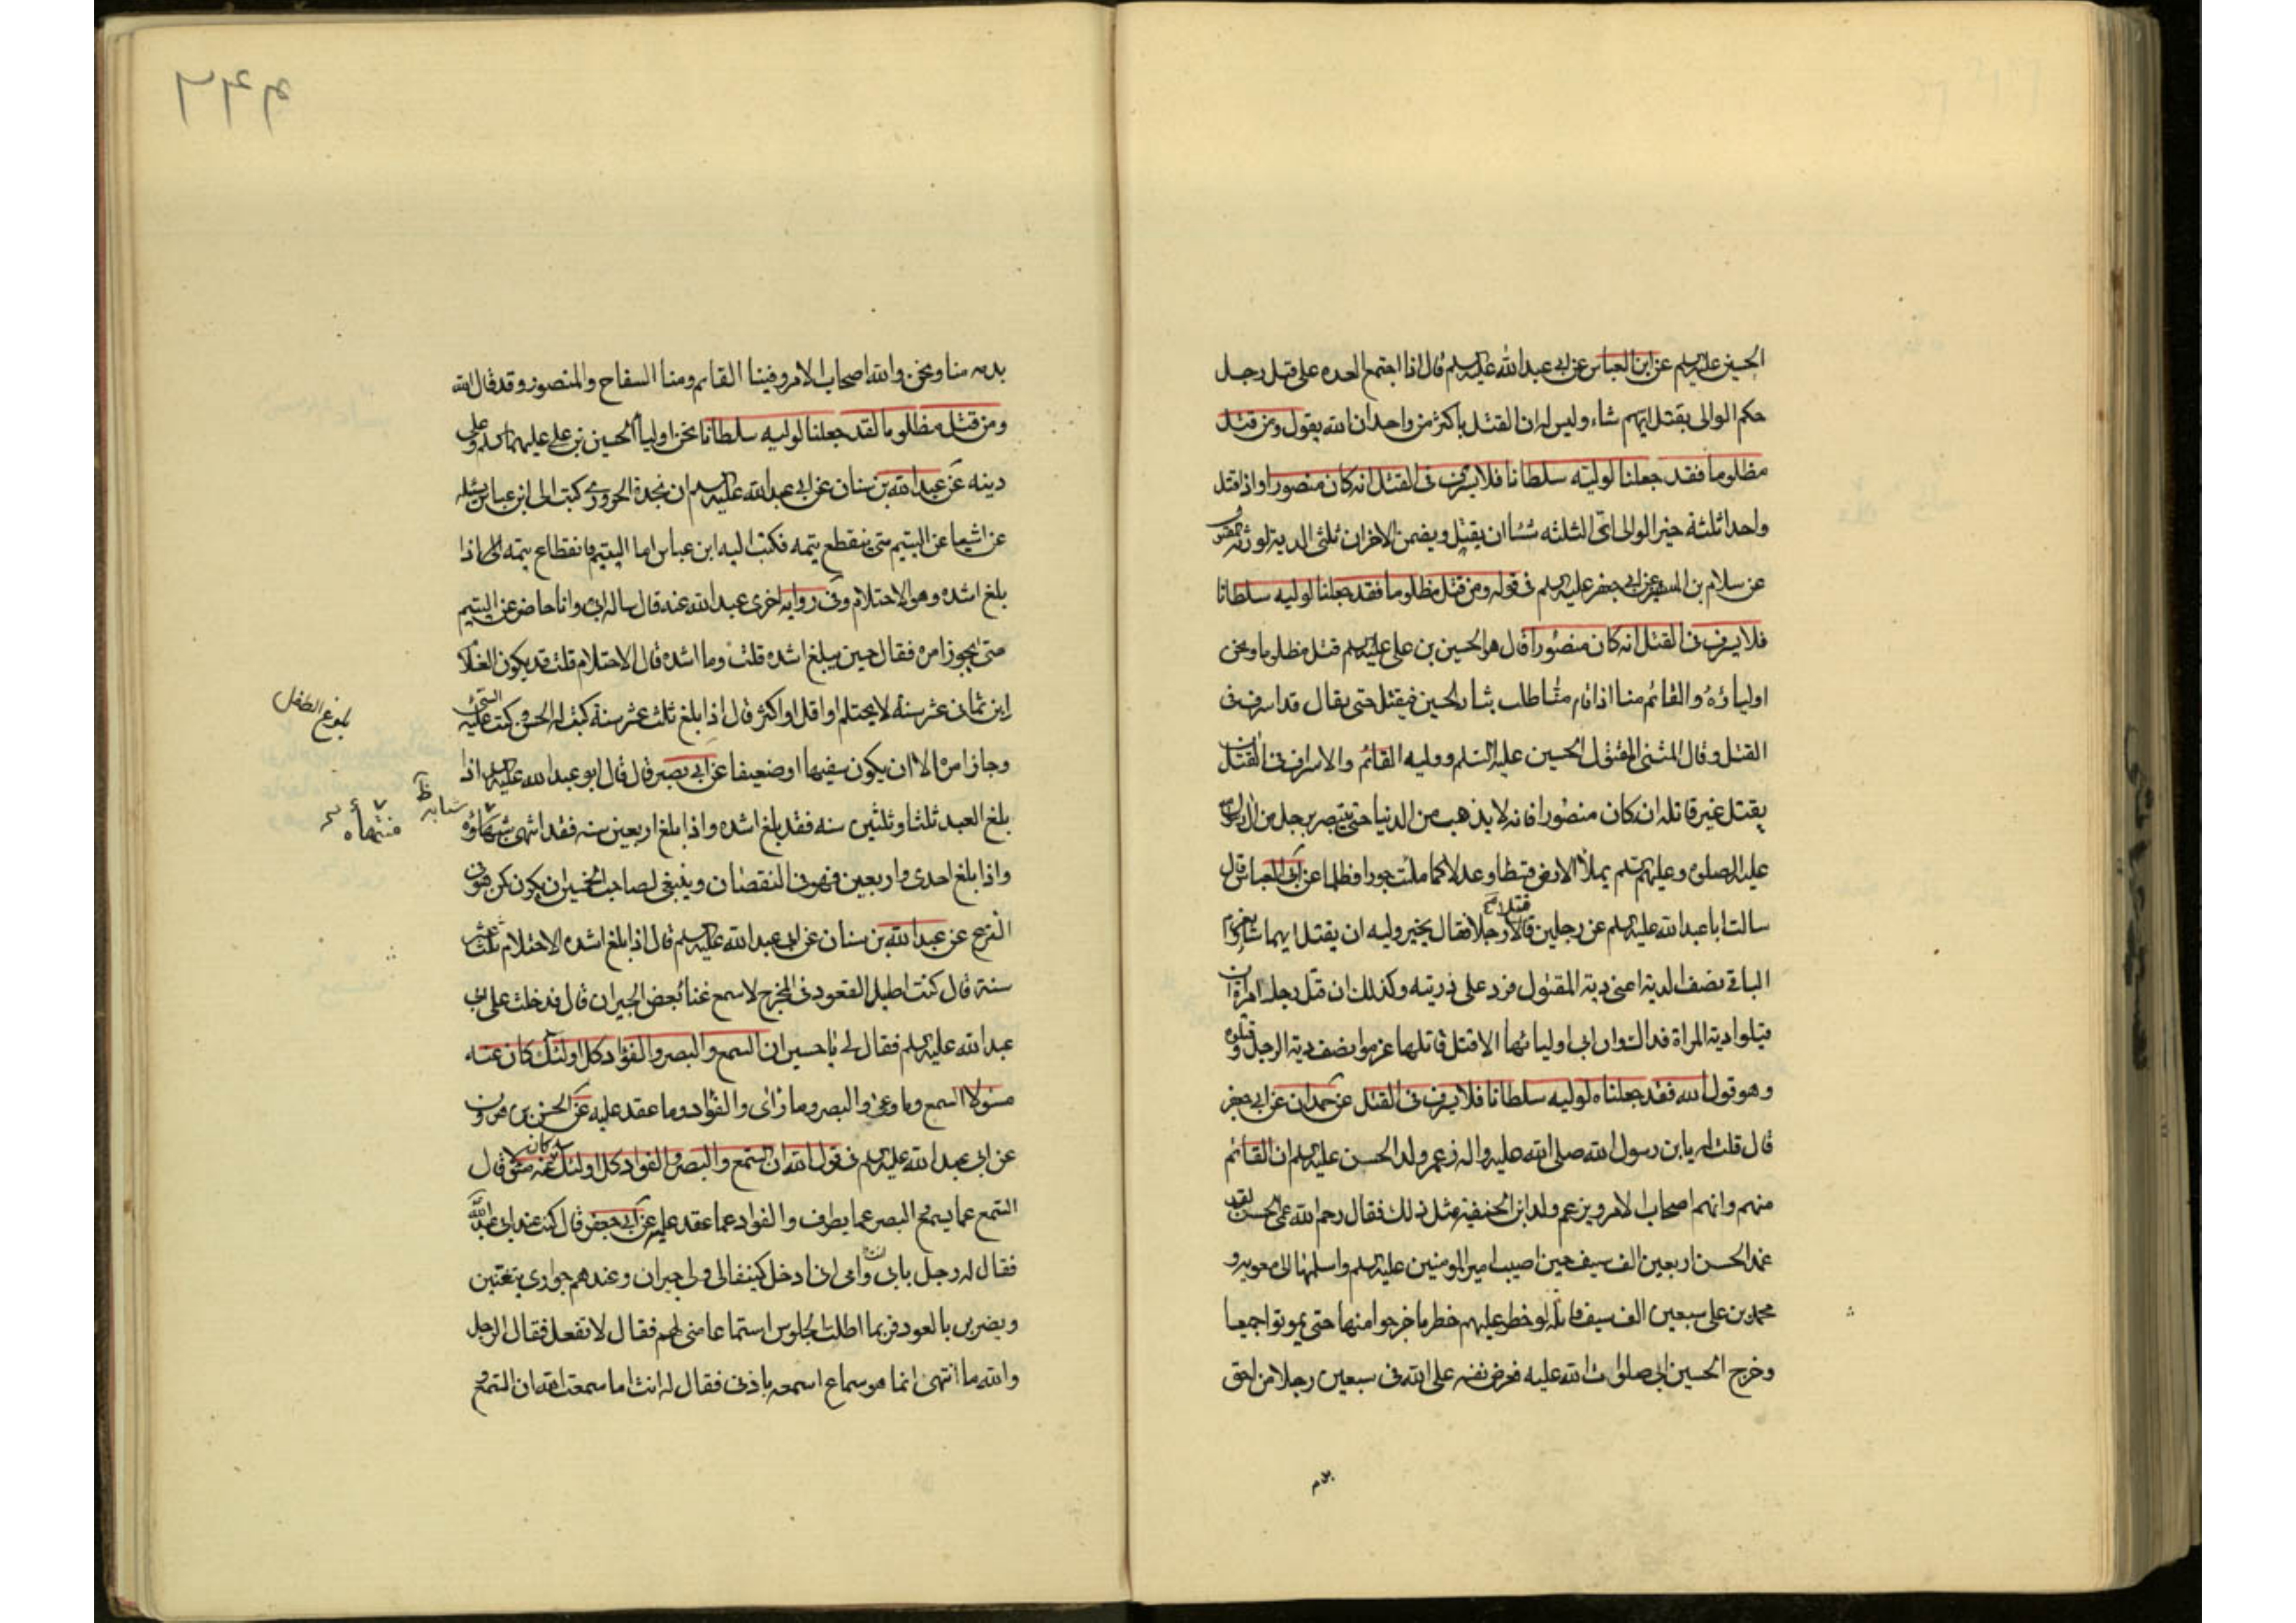 الحسين عليه السلم عن ابن العباس عن ابى عبد الله عليه السلم قال اذا اجتمع العده على قتل رجل
حكم الوالى بقتل ايهم شاء وليس لهم ان القتل باكثر من واحد ان الله يقول ومن قتل
مظلوما فقد جعلنا لوليه سلطانا فلا يسرف فى القتل انه كان منصورا واذا قتل
واحدا ثلثة خير الوالى اى الثلثه شاء ان يقتل ويضمن الاخران ثلثى الدية لورثة
عن سلام بن عن ابى جعفر عليه السلم فى قوله ومن قتل مظلوما فقد جعلنا لوليه سلطانا
فلا يسرف فى القتل انه كان منصورا قال هو الحسين بن على عليه السلم قتل مظلوما ونحن
اولياؤه والقائم منا اذا قام منا طلب بثار الحسين فيقتل حتى يقال قد اسرف فى
القتل وقال المقتول الحسين عليه السلم ووليه القائم والاسراف فى القتل ان
يقتل غير قاتله ان كان منصورا فانه لا يذهب من الدنيا حتى ينتصر برجل من ال رسول الله
عليه الصلوة وعليهم السلم يملأ الارض قسطا وعدلا كما ملئت جورا وظلما عن ابى العباس قال
سالت ابا عبد الله عليه السلم عن رجلين قتلا رجلا فقال يخير وليه ان يقتل ايهما شاء ويغرم
الباقى نصف الدية اعنى دية المقتول فرد على ذريته وكذلك ان قتل رجل امراة ان
قبلوا دية المراة فذاك وان ابى اولياؤها الا قتل قاتلها غرموا نصف دية الرجل وقتلوه
وهو قول الله فقد جعلناه لوليه سلطانا فلا يسرف فى القتل عن حمران عن ابى جعفر
قال قلت له يا بن رسول الله صلى الله عليه واله زعم ولد الحسن عليه السلم ان القائم
منهم وانهم اصحاب الامر ويزعم ولد ابن الحنفية مثل ذلك فقال رحم الله عمى الحسن لقد
غمد الحسن اربعين الف سيف حين اصيب امير المومنين عليه السلم واسلمها الى معويه و
محمد بن على سبعين الف سيف قاتله لو خطر عليهم خطر ما خرجوا منها حتى يموتوا جميعا
وخرج الحسين صلوات الله عليه فعرض نفسه على الله فى سبعين رجلا من احق
بدم
٢٢٩
بدمه منا ونحن والله اصحاب الامر وفينا القائم ومنا السفاح والمنصور وقد قال الله
ومن قتل مظلوما لقد جعلنا لوليه سلطانا نحن اوليا الحسين بن على عليهما السلم وعلى
دينه عن عبد الله بن سنان عن ابى عبد الله عليه السلم ان نجدة الحرورى كتب الى ابن عباس يسئله
عن اشيا عن اليتيم متى ينقطع يتمه فكتب اليه ابن عباس اما اليتيم فانقطاع يتمه اذا
بلغ اشده وهو الاحتلام وفى رواية اخرى عبد الله عنه قال ساله ابى وانا حاضر عن اليتيم
متى يجوز امره فقال حين يبلغ اشده قلت وما اشده قال الاحتلام قلت قد يكون الغلام
ابن ثمان عشر سنة لا يحتلم او اقل او اكثر قال اذا بلغ ثلث عشر سنة كتب له الحسن وكتب عليه السئ
بلوغ الطفل
وجاز امره الا ان يكون سفيها او ضعيفا عن ابى بصير قال قال ابو عبد الله عليه السلم اذا
بلغ العبد ثلثا وثلثين سنه فقد بلغ اشده واذا بلغ اربعين سنه فقد انتهى
شبابه ظ
منتهاه
واذا بلغ احدى واربعين فهو فى النقصان وينبغى لصاحب الخمسين ان يكون كمن هو فى
النزع عن عبد الله بن سنان عن ابى عبد الله عليه السلم قال اذا بلغ اشده الاحتلام ثلث عشر
سنة قال كنت اطيل القعود فى المخرج لاسمع غنا بعض الجيران قال فدخلت على ابى
عبد الله عليه السلم فقال لى يا حسن ان السمع والبصر والفؤاد كل اولئك كان عنه
مسؤلا السمع وما وعى والبصر وما راى والفؤاد وما عقد عليه عن الحسن بن هرون
عن ابى عبد الله عليه السلم فى قول الله ان السمع والبصر والفواد كل اولئك كان عنه مسؤلا قال
السمع عما يسمع والبصر عما يطرف والفواد عما عقد عليه عن ابى جعفر قال كنت عند ابى عبد الله
فقال له رجل بابى وامى انى ادخل كنيفا لى ولى جيران وعندهم جوارى يتغنين
ويضربن بالعود فربما اطلت الجلوس استماعا منى لهم فقال لا تفعل فقال الرجل
والله ما انتهى انما هو سماع اسمعه باذنى فقال له انت اما سمعت الله ان السمع